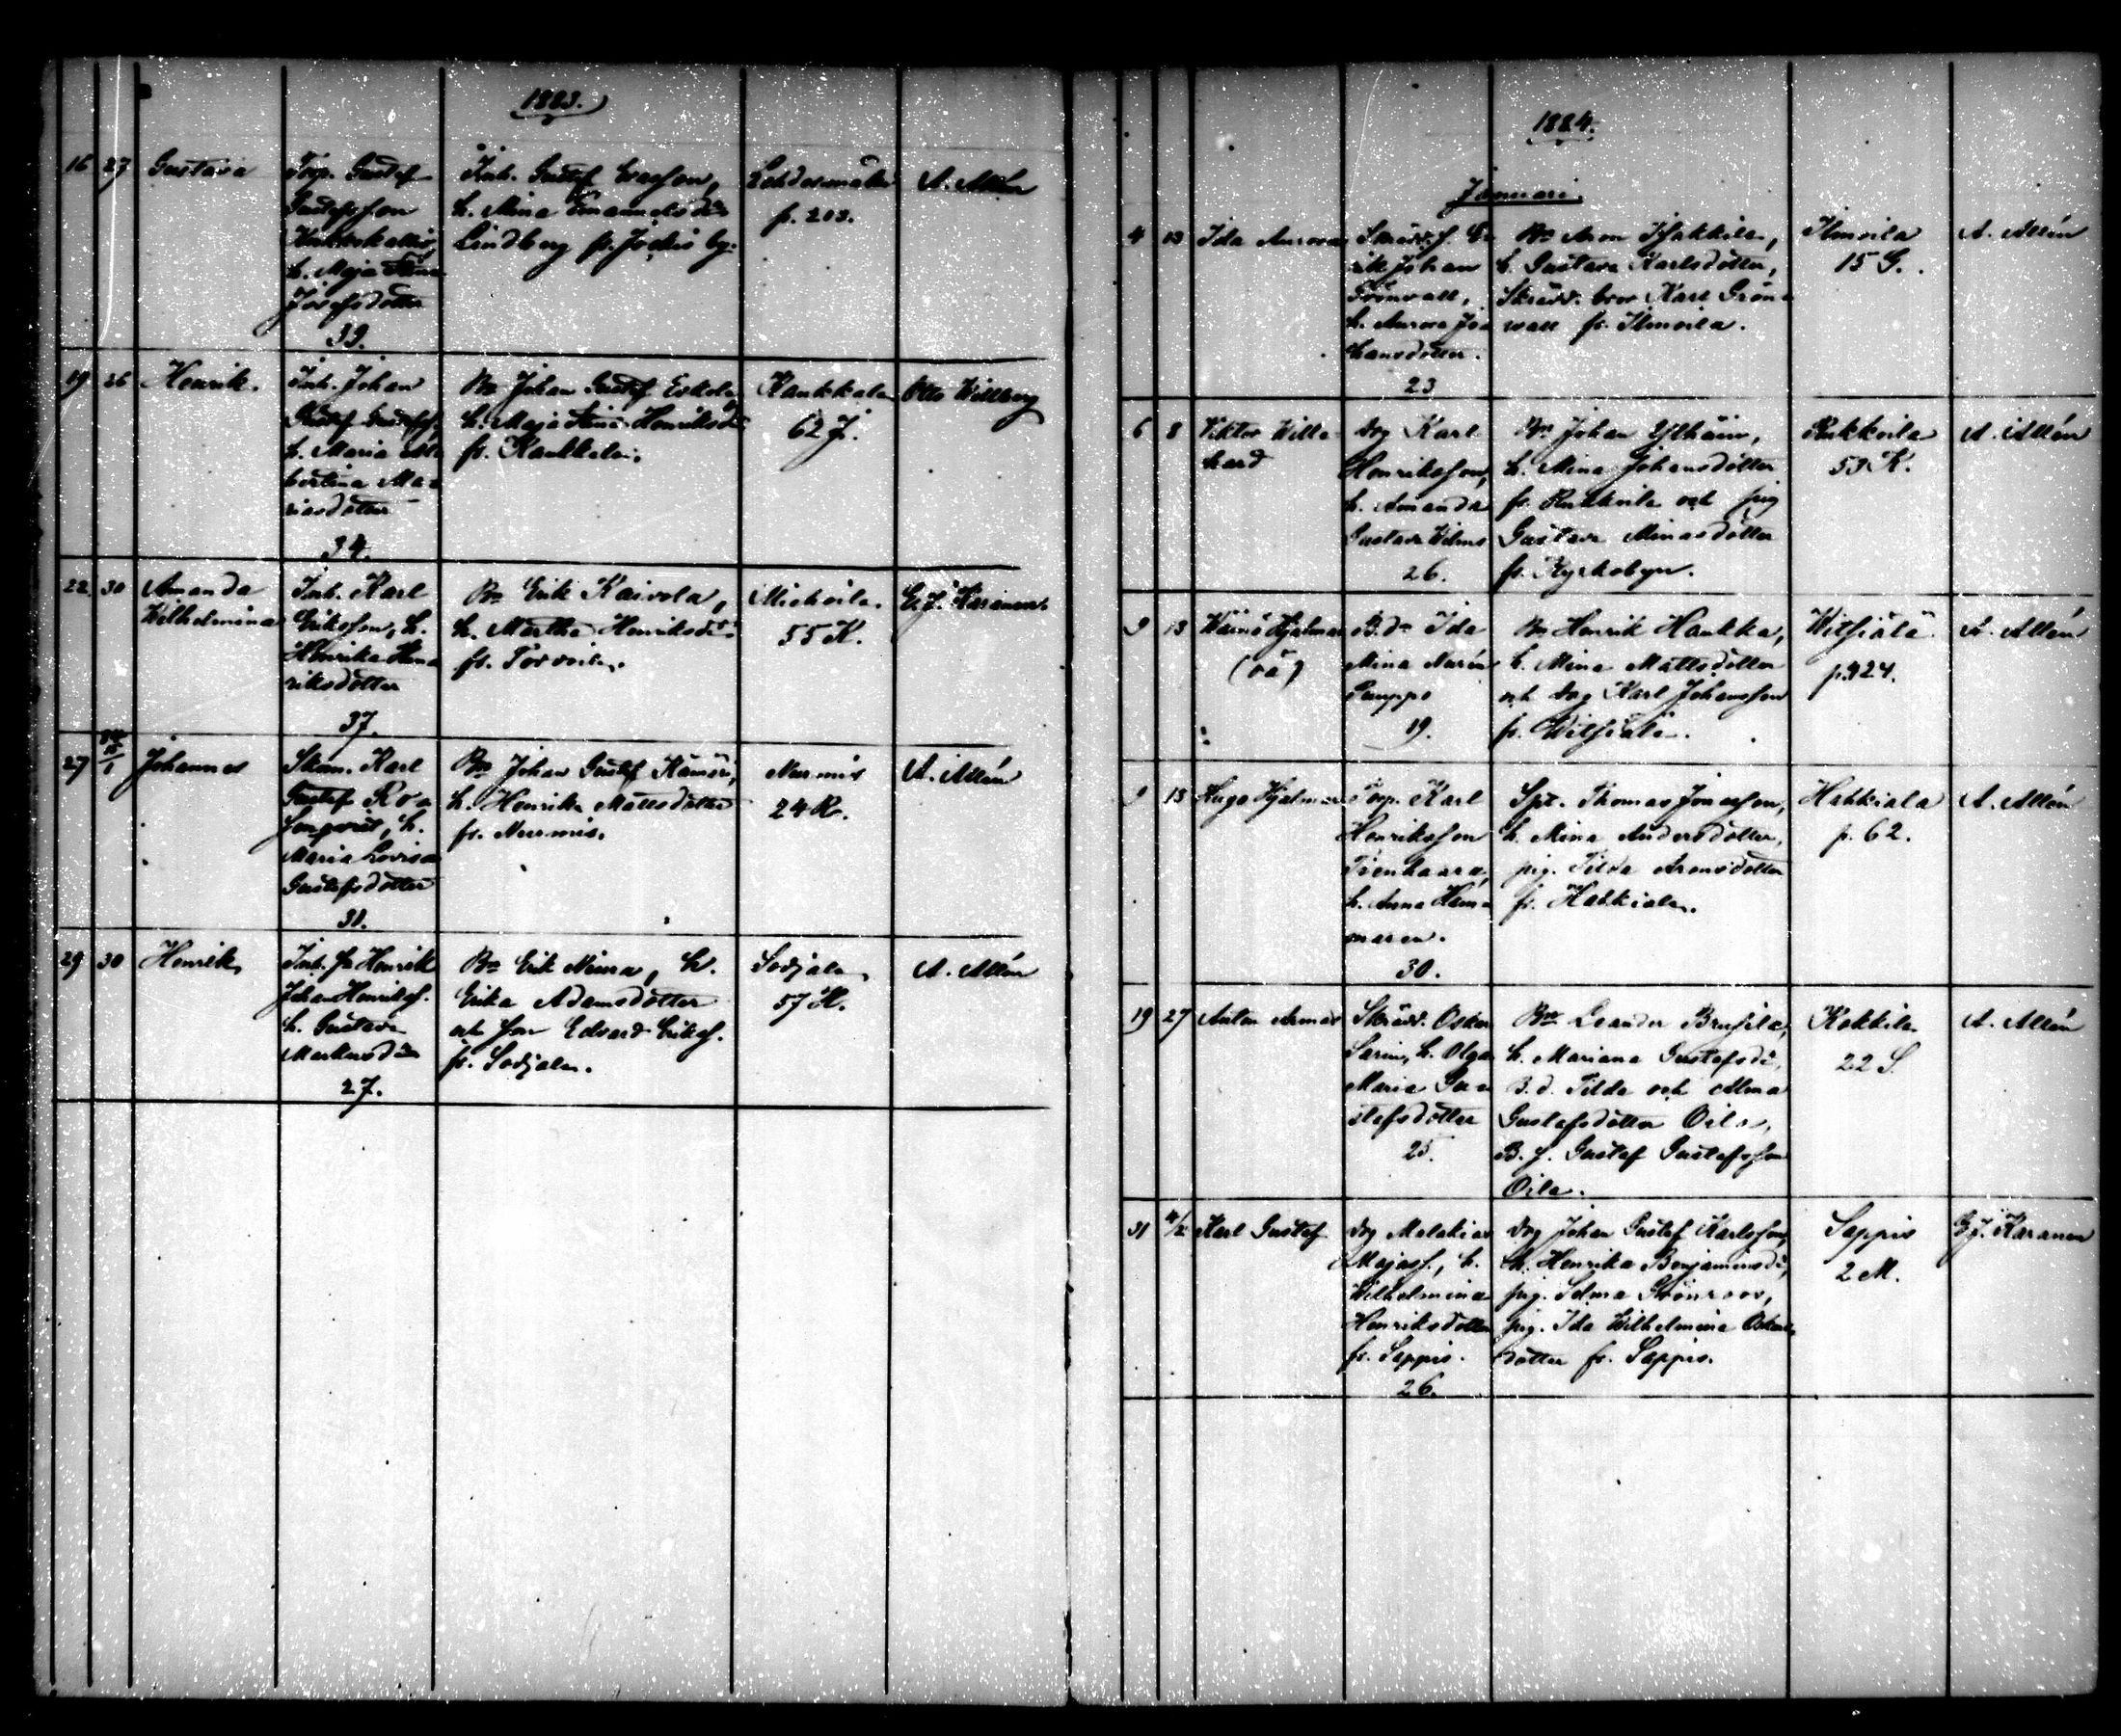 1883.
16 27 Gustava
Torp. Gustaf
Gustafsson
h. Maja Stina
Josefsdotter
39.
Inh. Gustaf Ersson,
h. Mina Emanuelsdr
Lindberg fr. Jockis by.
p. 203.
A. Allén
19 26 Henrik.
Inh. Johan
Gustaf Gustafss.
h. Maria Al=
bertina Ma=
riasdotter
34.
Bn Johan Gustaf Eskola,
h. Maja Stina Henriksdr
fr. Kankkala.
Kankkala
62 J.
Otto Willberg
22. 30 Amanda
Wilhelmina
Inh. Karl
Eriksson, h.
Henrika Hen=
riksdotter
37.
Bn Erik Kaivola,
h. Martha Henriksdr
fr. Torvoila.
Michoila.
55 K.
G. J. Karanen.
27 84 15/1 Johannes
Karl
Gustaf Ro=
senqvist, h.
Maria Lovisa
Gustafsdotter
31.
Bn Johan Gustaf
h. Henrika Mattsdotter
fr. Nurmis.
Nurmis
24 R.
A. Allén
29 30 Henrik
Inh. Henrik
Johan Henrikss.
h. Gustava
Markusdr
27.
Bn Erik Niura, h.
Erika Adamsdotter
och son Edvard Erikss.
fr. Sodjala.
Sodjala
57 H.
A. Allén
1884.
Januari.
4 13 Ida Aurora
Skrädd. s. Er=
ik Johan
Grönvall,
h. Aurora Jo=
hansdotter.
23
Bn Aron Isakkila,
h. Gustava Karlsdotter,
Skrädd. bror Karl Grön=
wall fr. Ilmoila.
Ilmoila
15 G.
A. Allén
6 8 Viktor Wille=
hard
Drg Karl
Henriksson,
h. Amanda
Gustava Wilms
26.
Bn Johan Ylhäin,
h. Mina Johansdotter
fr. Rukkoila och pig
Gustava Minasdotter
fr. Kyrkobyn.
Rukkoila
53 K.
A. Allén
9 13 Wäinö Hjalmar
(oä)
B. dr Ida
Mina Norén
19.
Bn Henrik Haukka,
h. Mina Mattsdotter
och drg Karl Johansson
fr. Witsiälä.
Witsiälä
p. 424.
A. Allén
9 13 Hugo Hjalmar
Torp. Karl
Henriksson
Tienhaara,
h. Anna Häm=
30.
Spt. Thomas Jonasson,
h. Mina Andersdotter,
pig. Tilda Aronsdotter
fr. Hakkiala.
Hakkiala
p. 62.
A. Allén
19 27 Anton Armas
Skrädd. Oskar
Sarin, h. Olga
Maria Gu=
stafsdotter
25.
Bn Leander Brusila,
h. Mariana Gustafsdr,
B. d. Tilda och Alma
Gustafsdotter Oila,
B. s. Gustaf Gustafsson
Oila.
Kokkila
22 S.
A. Allén
31 4/2 Karl Gustaf
Drg Malakias
Majass., h.
Wilhelmina
Henriksdotter
fr. Sappis.
26.
Drg Johan Gustaf Karlsson,
h. Henrika Benjaminsdr,
pig. Selma Grönroos,
pig. Ida Wilhelmina Oskars
dotter fr. Sappis.
Sappis
2 M.
G. J. Karanen